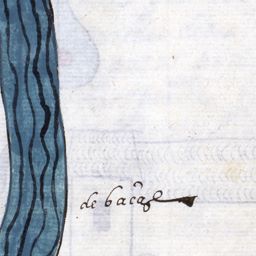 de bacas